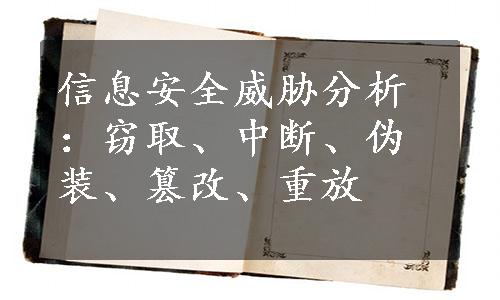 信息安全威胁分析
：窃取、中断、伪
装、篡改、重放